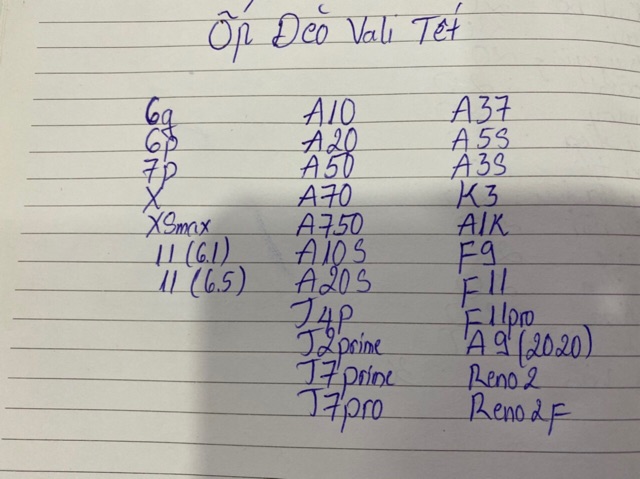 Ốp Dẻo Vali Tết
6g
6p
7p
X
XSmax
11 (6.1)
11 (6.5)
A10
A20
A50
A70
A750
A10S
A20S
J4P
J2prime
J7prime
J7pro
A37
A5S
A3S
K3
A1K
F9
F11
F11pro
A9(2020)
Reno2
Reno2F